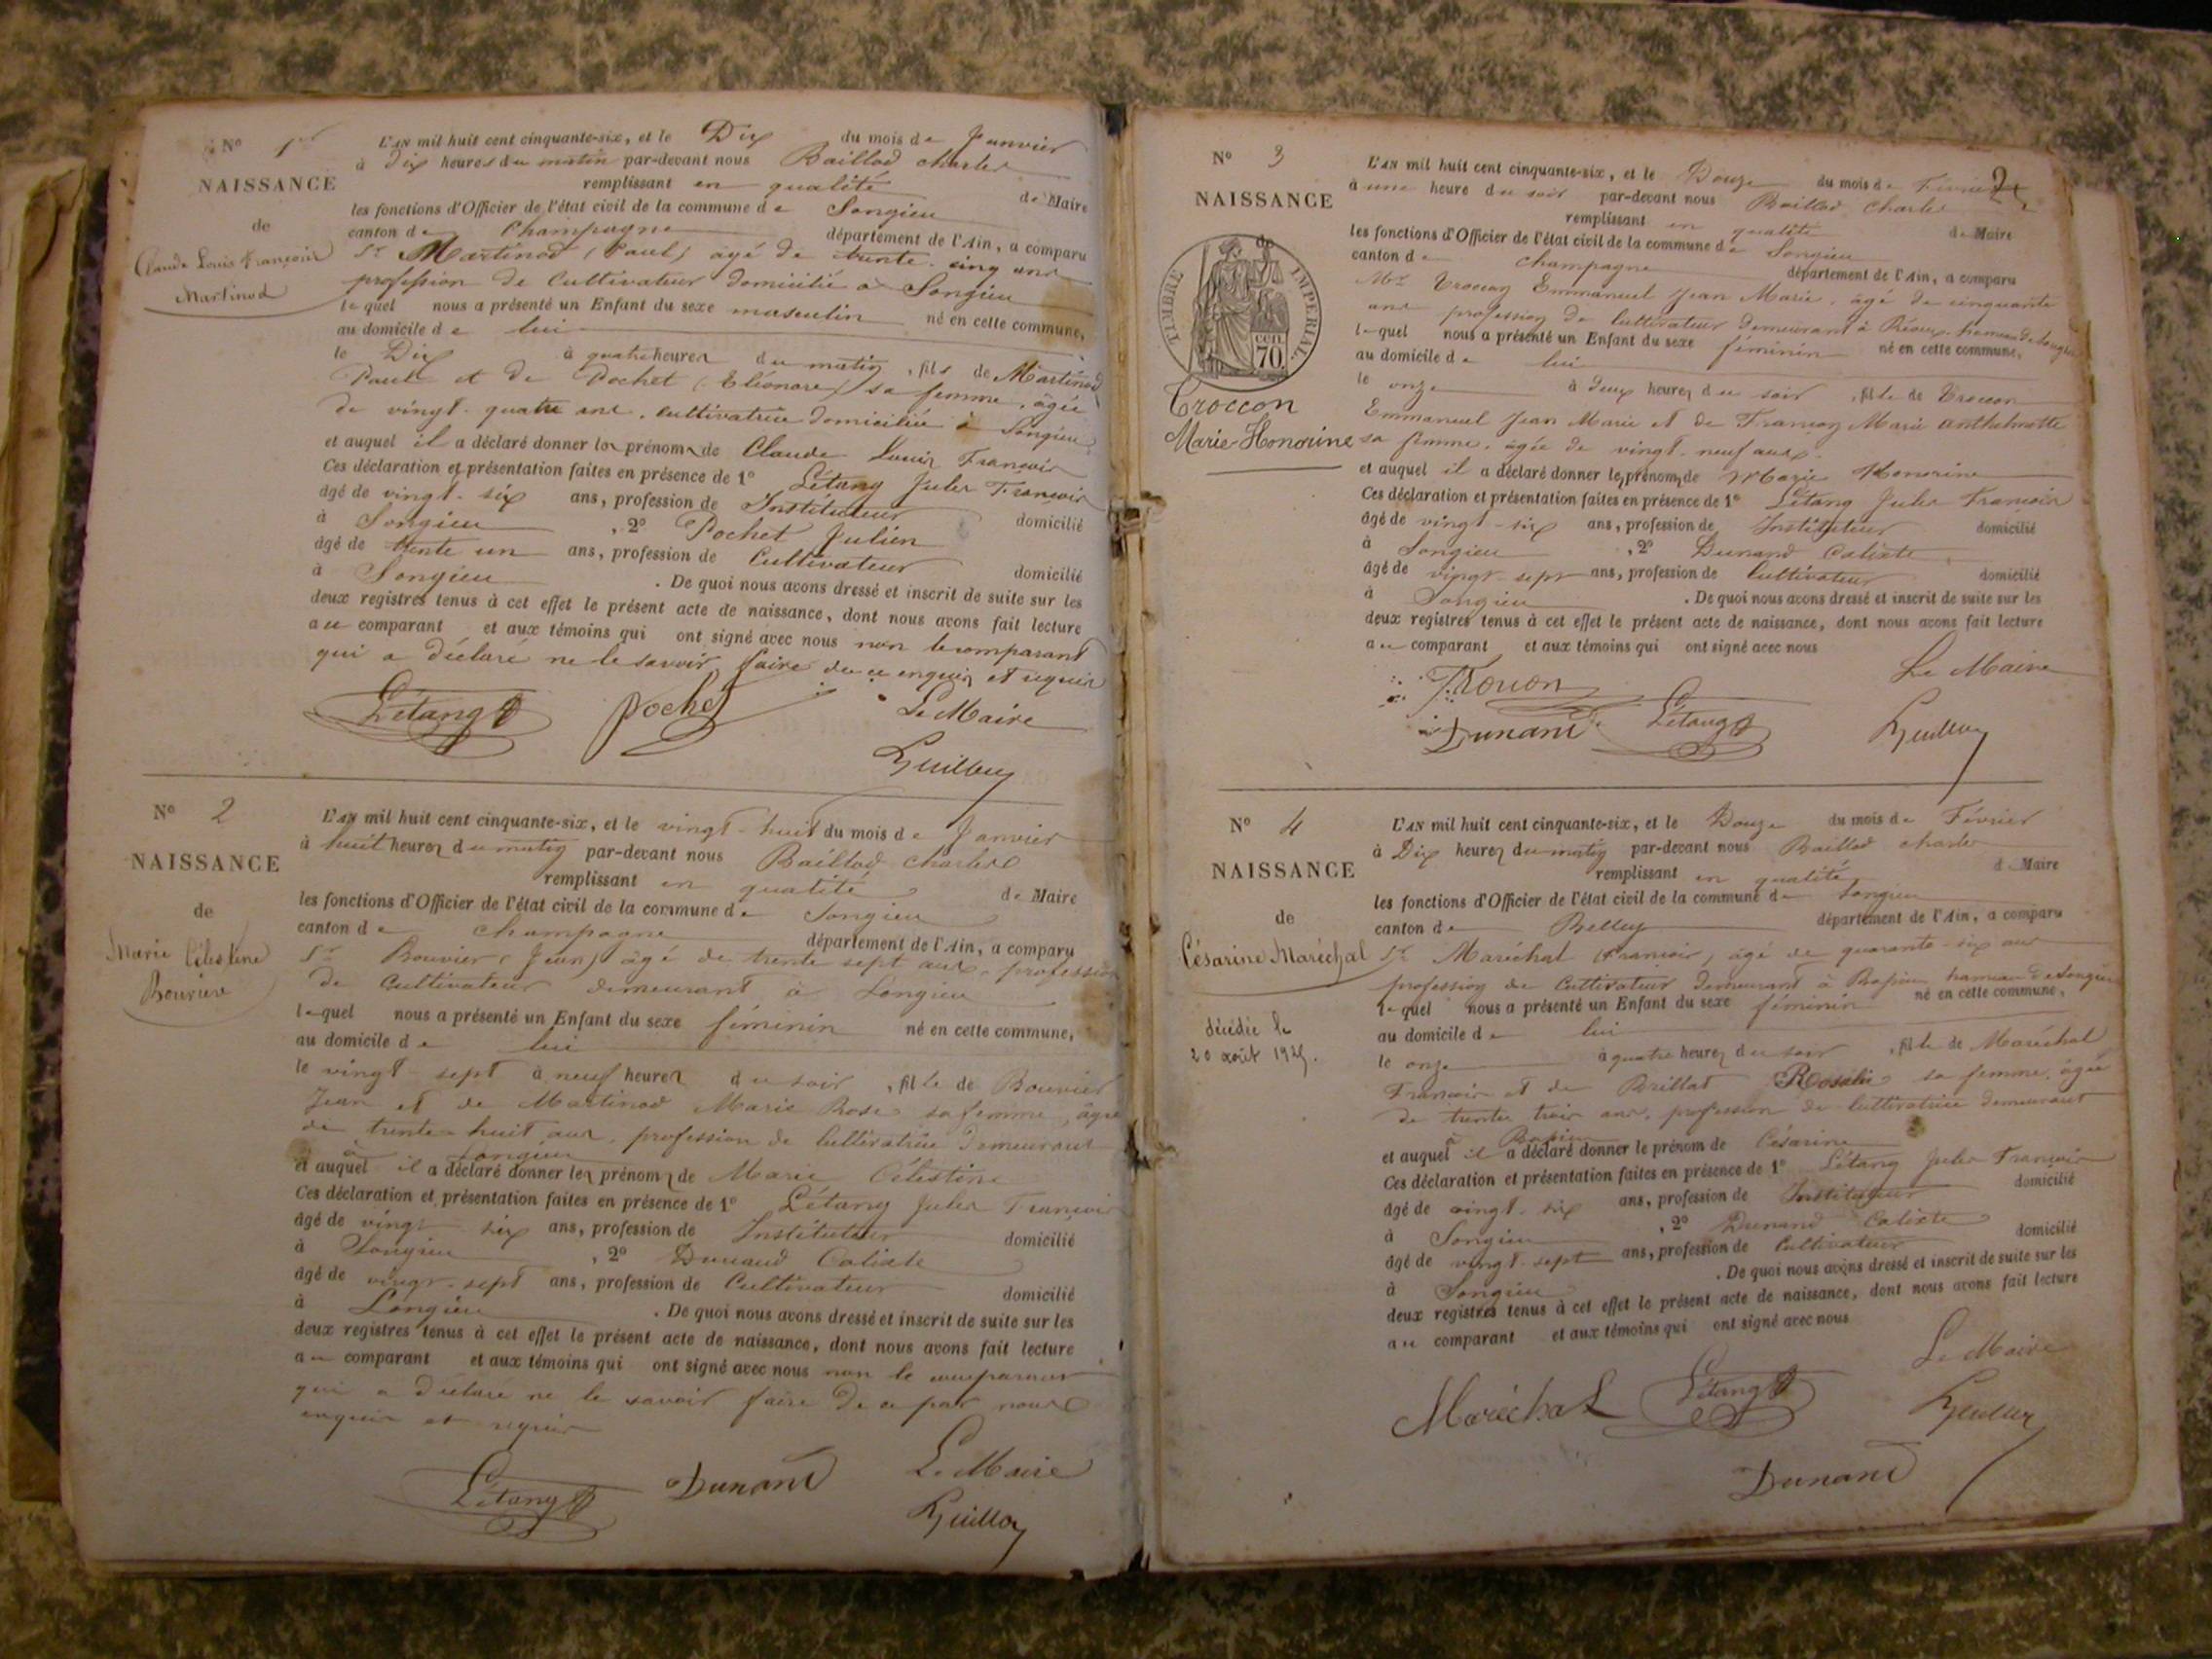 N° 1er
NAISSANCE
de
Claude Louis François
Martinod
L'AN mil huit cent cinquante-six, et le Dix du mois de Janvier
à dix heures du matin par-devant nous Baillod Charles
remplissant en qualité de Maire
les fonctions d'Officier de l'état civil de la commune de Songieu
canton de Champagne département de l'Ain, a comparu
Sr Martinod (Paul) âgé de trente-cinq ans
profession de Cultivateur domicilié à Songieu
lequel nous a présenté un Enfant du sexe masculin né en cette commune,
au domicile de lui
le Dix à quatre heures du matin, fils de Martinod
Paul et de Pochet (Eléonore) sa femme, âgée
de vingt-quatre ans, cultivatrice domiciliée à Songieu
et auquel il a déclaré donner les prénoms de Claude Louis François
Ces déclaration et présentation faites en présence de 1° Létang Jules François
âgé de vingt-six ans, profession de Instituteur domicilié
à Songieu, 2° Pochet Julien
âgé de trente un ans, profession de Cultivateur domicilié
à Songieu. De quoi nous avons dressé et inscrit de suite sur les
deux registres tenus à cet effet le présent acte de naissance, dont nous avons fait lecture
au comparant et aux témoins qui ont signé avec nous non le comparant
qui a déclaré ne le savoir faire de ce enquis et requis
Létang Pochet Le Maire
N° 2
NAISSANCE
de
Marie Célestine
Bouvier
L'AN mil huit cent cinquante-six, et le vingt-huit du mois de Janvier
à huit heures du matin par-devant nous Baillod Charles
remplissant en qualité de Maire
les fonctions d'Officier de l'état civil de la commune de Songieu
canton de Champagne département de l'Ain, a comparu
Sr Bouvier (Jean) âgé de trente sept ans, profession
de Cultivateur demeurant à Songieu
lequel nous a présenté un Enfant du sexe féminin né en cette commune,
au domicile de lui
le vingt-sept à neuf heures du soir, fille de Bouvier
Jean et de Martinod Marie Rose sa femme, âgée
de trente-huit ans, profession de Cultivatrice demeurant
à Songieu
et auquel il a déclaré donner les prénoms de Marie Célestine
Ces déclaration et présentation faites en présence de 1° Létang Jules François
âgé de vingt-six ans, profession de Instituteur domicilié
à Songieu, 2° Dunand Calixte
âgé de vingt-sept ans, profession de Cultivateur domicilié
à Songieu. De quoi nous avons dressé et inscrit de suite sur les
deux registres tenus à cet effet le présent acte de naissance, dont nous avons fait lecture
au comparant et aux témoins qui ont signé avec nous non le comparant
qui a déclaré ne le savoir faire de ce par nous
enquis et requis
Létang Dunand Le Maire
2
N° 3
NAISSANCE
de
TIMBRE IMPERIAL
CEN. 70.
Troccon
Marie Honorine
L'AN mil huit cent cinquante-six, et le Douze du mois de Février
à une heure du soir par-devant nous Baillod Charles
remplissant en qualité de Maire
les fonctions d'Officier de l'état civil de la commune de Songieu
canton de Champagne département de l'Ain, a comparu
Mr Troccon Emmanuel Jean Marie, âgé de cinquante
ans profession de Cultivateur demeurant à hameau de Songieu
lequel nous a présenté un Enfant du sexe féminin né en cette commune,
au domicile de lui
le onze à deux heures du soir, fille de Troccon
Emmanuel Jean Marie et de Françoy Marie Anthelmette
sa femme, âgée de vingt-neuf ans
et auquel il a déclaré donner les prénoms de Marie Honorine
Ces déclaration et présentation faites en présence de 1° Létang Jules François
âgé de vingt-six ans, profession de Instituteur domicilié
à Songieu, 2° Dunand Calixte
âgé de vingt-sept ans, profession de Cultivateur domicilié
à Songieu. De quoi nous avons dressé et inscrit de suite sur les
deux registres tenus à cet effet le présent acte de naissance, dont nous avons fait lecture
au comparant et aux témoins qui ont signé avec nous
Le Maire
Dunand Létang
N° 4
NAISSANCE
de
Césarine Maréchal
décédée le
20 août 1925.
L'AN mil huit cent cinquante-six, et le Douze du mois de Février
à Dix heures du matin par-devant nous Baillod Charles
remplissant en qualité de Maire
les fonctions d'Officier de l'état civil de la commune de Songieu
canton de Belley département de l'Ain, a comparu
Sr Maréchal (François) âgé de quarante-six ans
profession de Cultivateur demeurant à hameau de Songieu
lequel nous a présenté un Enfant du sexe féminin né en cette commune,
au domicile de lui
le onze à quatre heures du soir, fille de Maréchal
François et de Brillat Rosalie sa femme, âgée
de trente trois ans, profession de Cultivatrice demeurant
à
et auquel il a déclaré donner le prénom de Césarine
Ces déclaration et présentation faites en présence de 1° Létang Jules François
domicilié
âgé de vingt-six ans, profession de Instituteur
à Songieu, 2° Dunand Calixte
âgé de vingt-sept ans, profession de Cultivateur domicilié
à Songieu. De quoi nous avons dressé et inscrit de suite sur les
deux registres tenus à cet effet le présent acte de naissance, dont nous avons fait lecture
au comparant et aux témoins qui ont signé avec nous
Le Maire
Maréchal Létang
Dunand